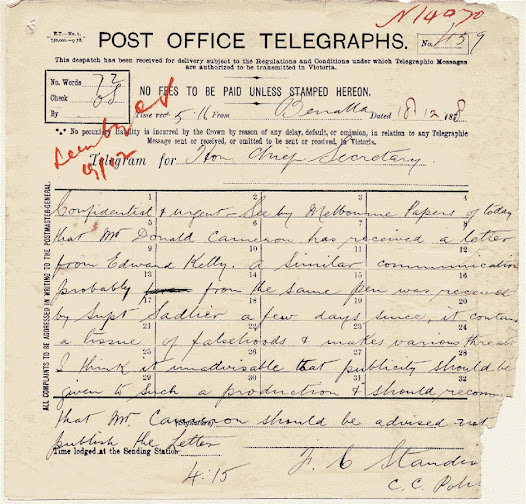 N14070
B.T.—No. 1.
POST OFFICE TELEGRAPHS.
No. 1159
This despatch has been received for delivery subject to the Regulations and Conditions under which Telegraphic Messages
are authorized to be transmitted in Victoria.
No. Words 72
Check 08
By
NO FEES TO BE PAID UNLESS STAMPED HEREON.
Time rec'd 5.16 From Benalla Dated 18/12/1878
*** No pecuniary liability is incurred by the Crown by reason of any delay, default, or omission, in relation to any Telegraphic
Message sent or received, or omitted to be sent or received, in Victoria.
19/12
Telegram for Hon Chief Secretary
ALL COMPLAINTS TO BE ADDRESSED IN WRITING TO THE POSTMASTER-GENERAL.
1 2 3 4
Confidential & urgent - See by Melbourne Papers of today
5 6 7 8
that Mr Donald Cameron has received a letter
9 10 11 12
from Edward Kelly. a Similar communication
13 14 15 16
probably from the same pen was received
17 18 19 20
by Supt Sadlier a few days since, it contains
21 22 23 24
a tissue of falsehoods & makes various threats
25 26 27 28
I think it unadvisable that publicity should be
29 30 31 32
given to such a production & should recomm
that Mr. Cameron should be advised not
(Signature)
publish the letter
Time lodged at the Sending Station
4.15
F. C Standis
C. C. Poli